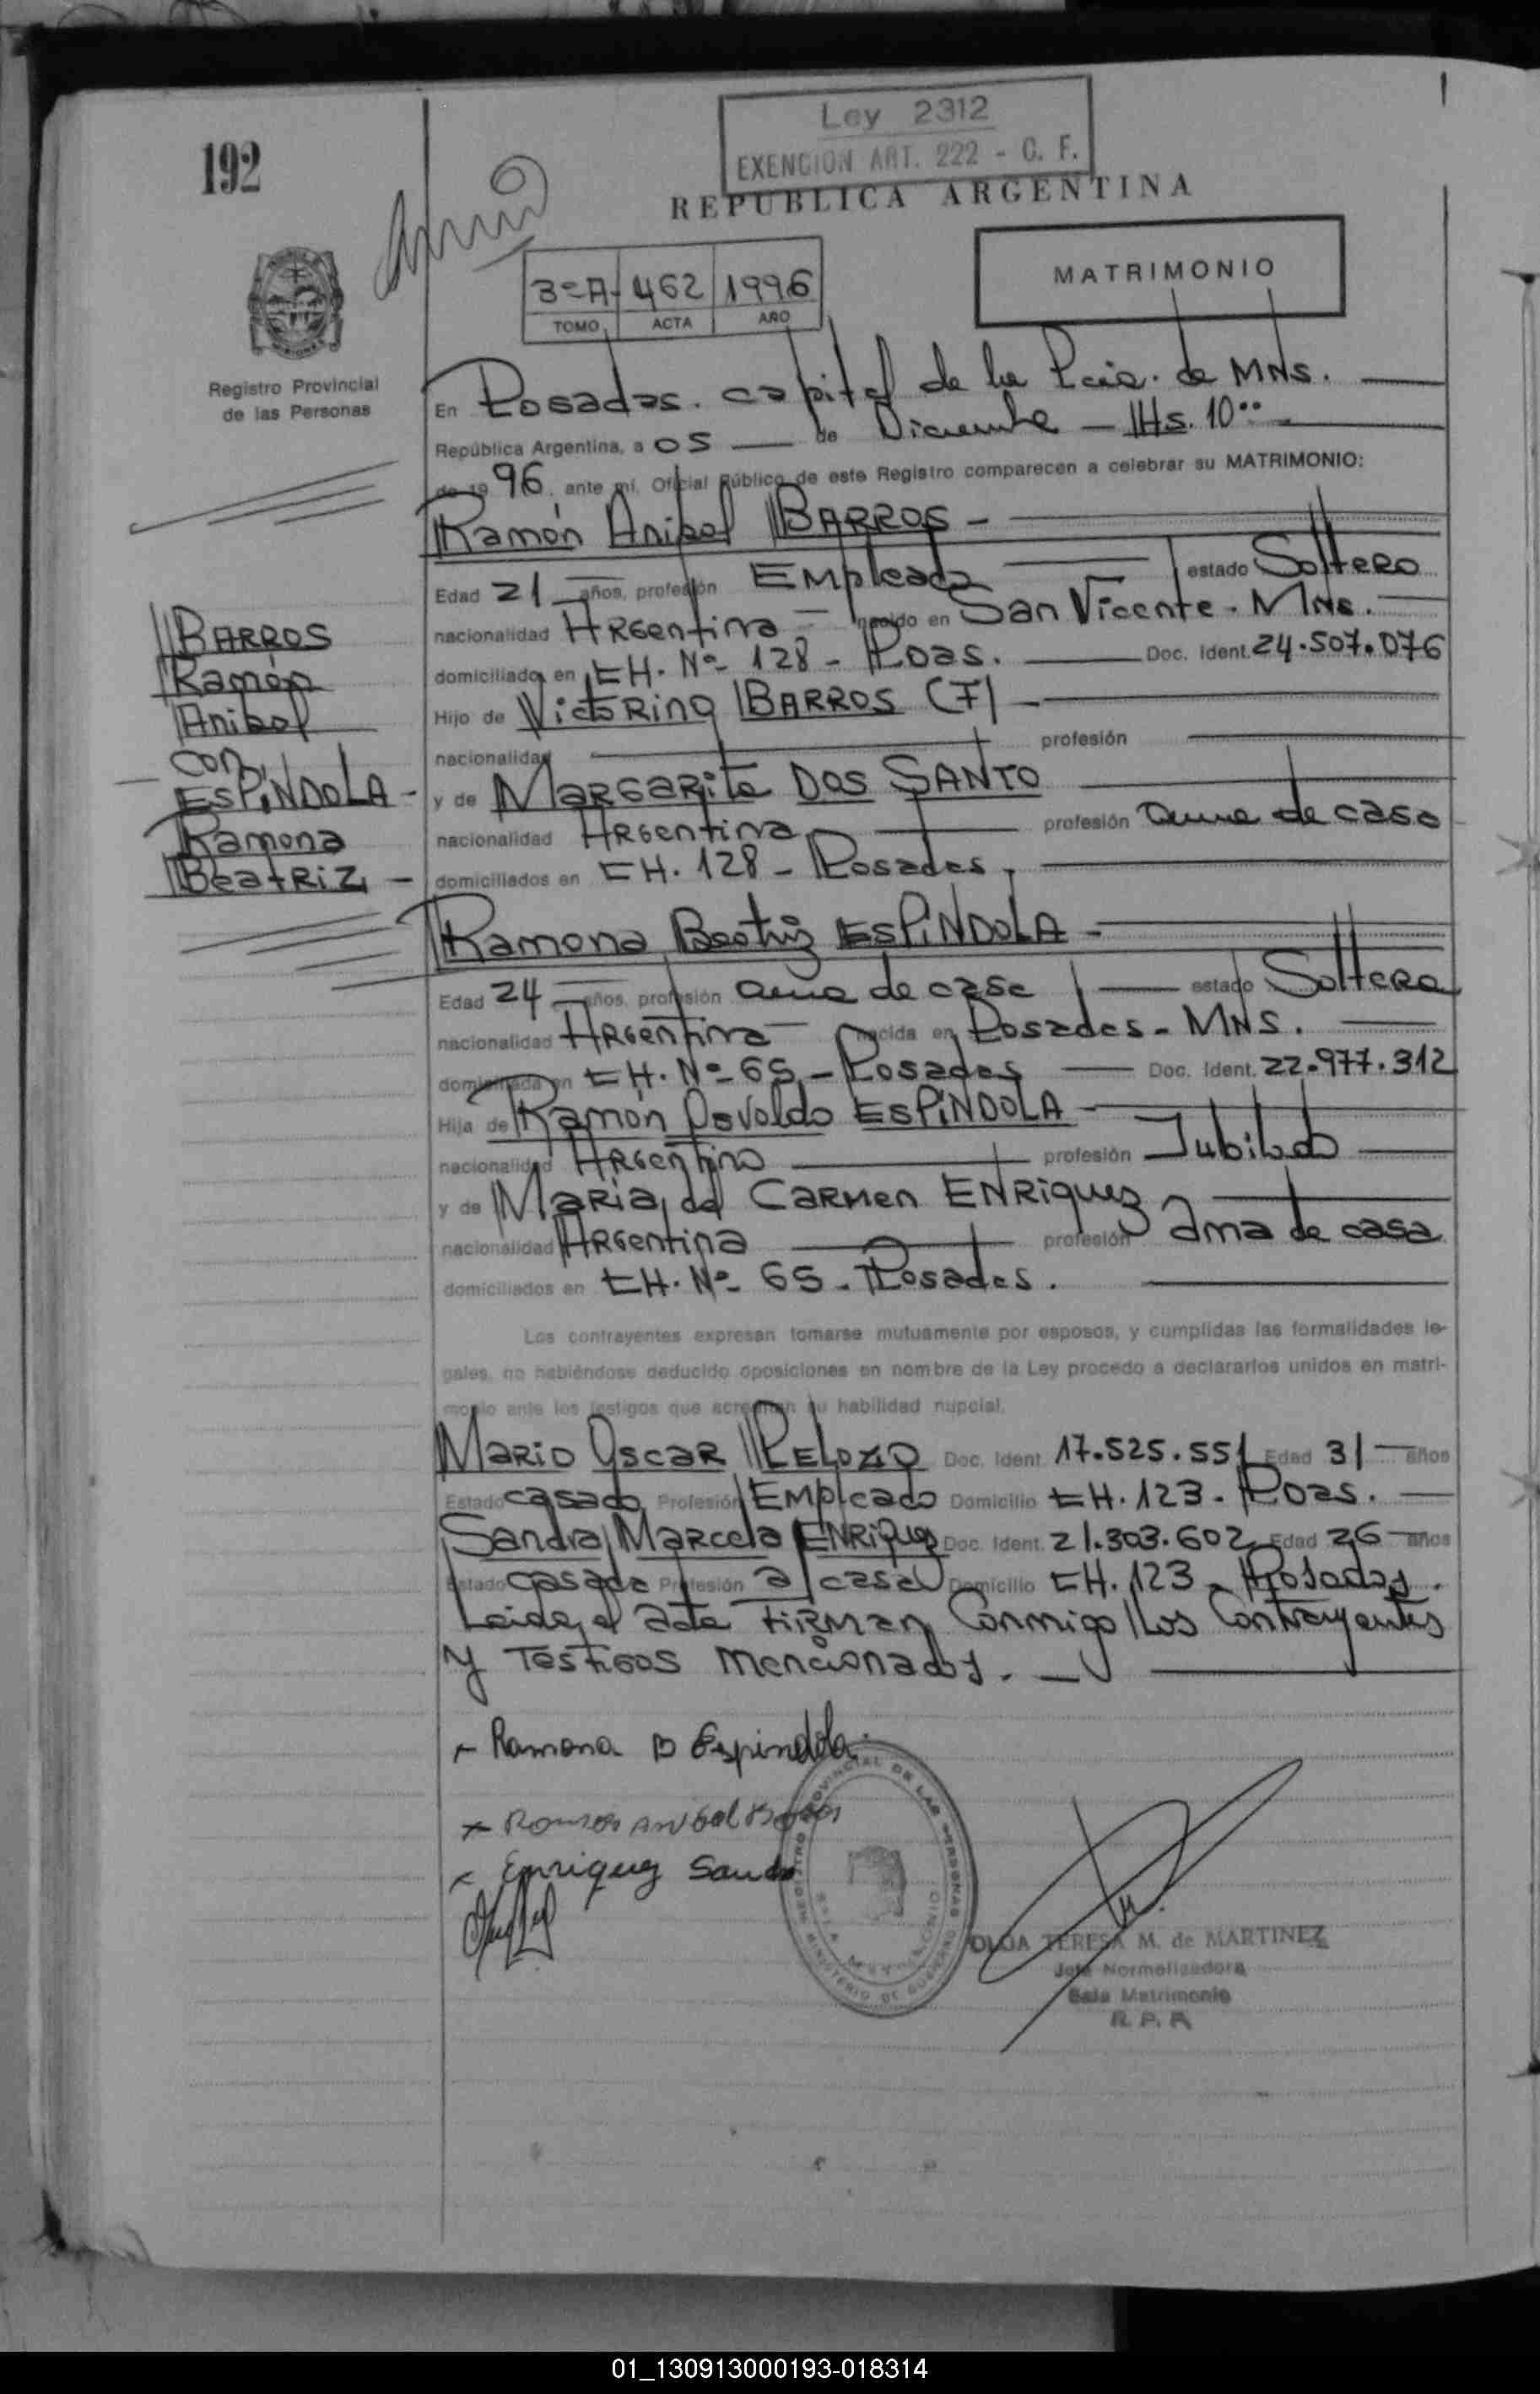 Ley 2312
EXENCION ART. 222 - C. F.
192
REPUBLICA ARGENTINA
MATRIMONIO
3º-A- 462 1996
TOMO ACTA AÑO
Registro Provincial
de las Personas
En Posadas. capital de la Pcia. de MNS.
República Argentina, a 05 de Diciembre - Hs. 10
de 19 96, ante mí, Oficial Público de este Registro comparecen a celebrar su MATRIMONIO:
Ramón Anibal BARROS -
Edad 21 años, profesión Empleado estado Soltero
nacionalidad Argentina nacido en San Vicente - MNS.
domiciliado en CH. Nº 128 - Pdas. Doc. Ident. 24.507.076
Hijo de Victorino BARROS (F) -
nacionalidad profesión
y de Margarita DOS SANTO
nacionalidad Argentina profesión ama de casa
domiciliados en CH. 128 - Posadas.
BARROS
Ramón
Anibal
con
ESPINDOLA -
Ramona
Beatriz -
Ramona Beatriz ESPINDOLA -
Edad 24 años, profesión ama de casa estado Soltera
nacionalidad Argentina nacida en Posadas - MNS.
domiciliada en CH. Nº 65 - Posadas Doc. Ident. 22.977.312
Hija de Ramón Osvaldo ESPINDOLA -
nacionalidad Argentino profesión Jubilado
y de Maria del Carmen ENRiquez
nacionalidad Argentina profesión ama de casa
domiciliados en CH. Nº 65 - Posadas.
Los contrayentes expresan tomarse mutuamente por esposos, y cumplidas las formalidades le-
gales, no habiéndose deducido oposiciones en nombre de la Ley procedo a declararlos unidos en matri-
monio ante los testigos que acreditan su habilidad nupcial.
Mario Oscar PELOZO Doc. Ident. 17.525.551 Edad 31 años
Estado casado Profesión Empleado Domicilio CH. 123 - Pdas.
Sandra Marcela ENRiquez Doc. Ident. 21.303.602 Edad 26 años
Estado casada Profesión a/casa Domicilio CH. 123 - Posadas.
Leida el acta firman conmigo los contrayentes
y testigos mencionados. -
Ramona B Espindola
Enriquez Sandra
REGISTRO PROVINCIAL DE LAS PERSONAS
MINISTERIO DE GOBIERNO
OLGA TERESA M. de MARTINEZ
Jefe Normalizadora
Sala Matrimonio
R. P. P.
01_130913000193-018314